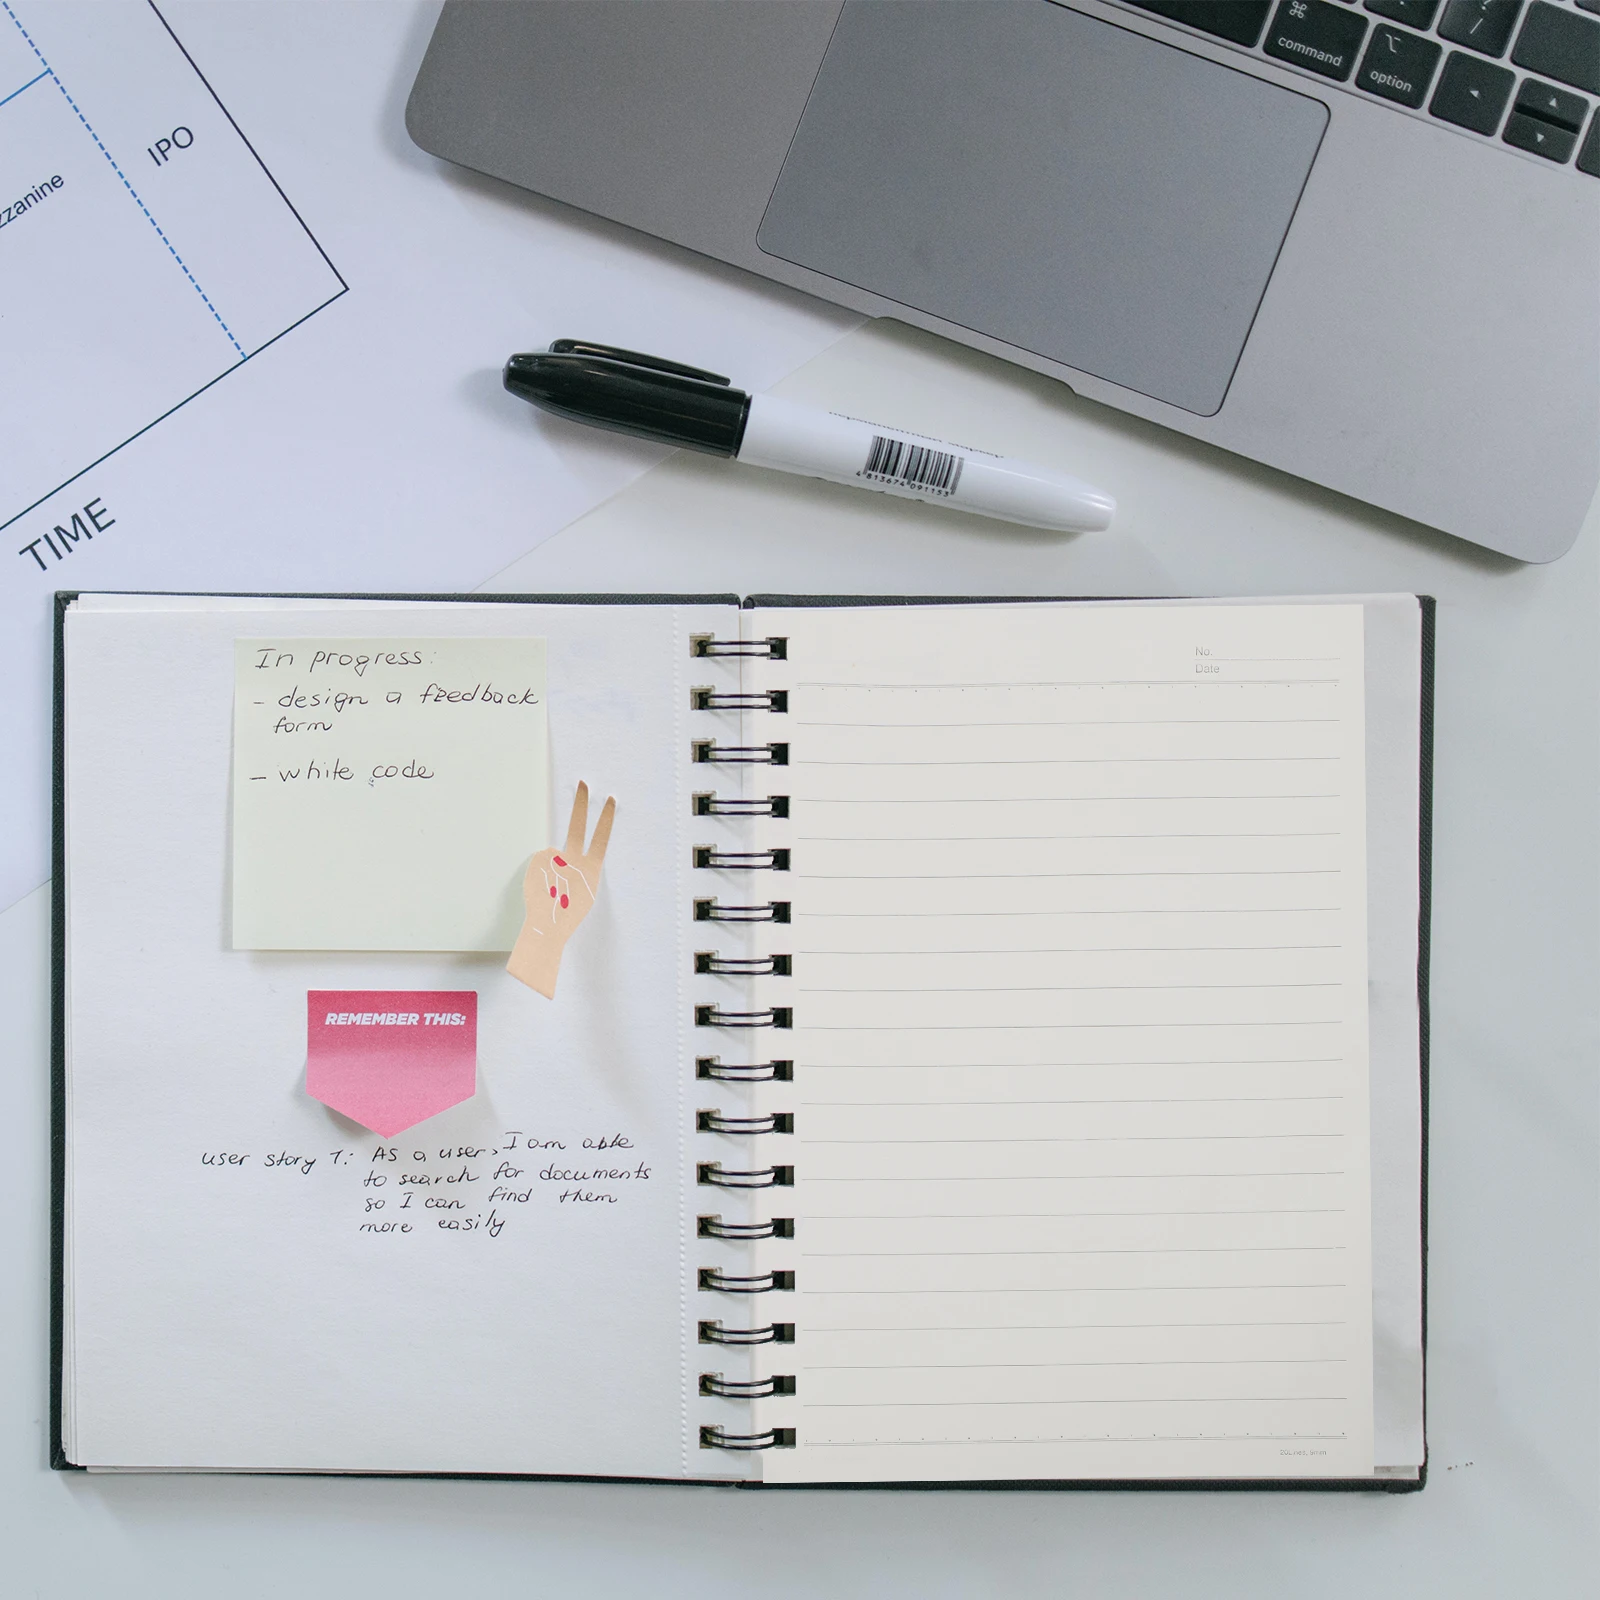 IPO
zzanine
TIME
command
option
4 813674 091153
In progress:
- design a feedback
form
- white code
REMEMBER THIS:
user story 1: As a user, I am able
to search for documents
so I can find them
more easily
No.
Date